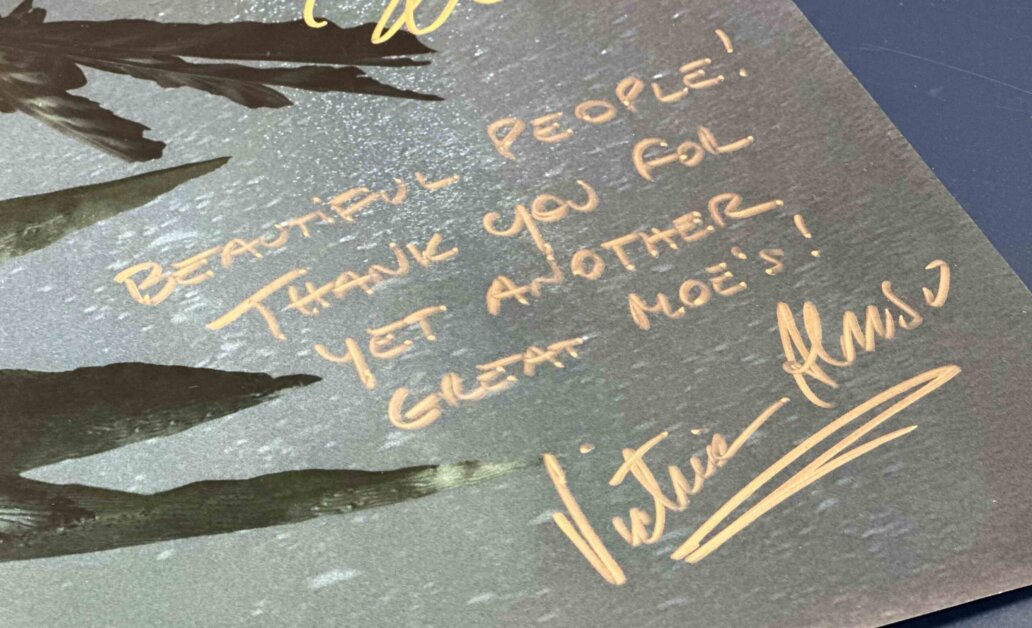 BEAUTIFUL PEOPLE!
THANK YOU FOR
YET ANOTHER
GREAT MOE'S!
Victoria Alonso